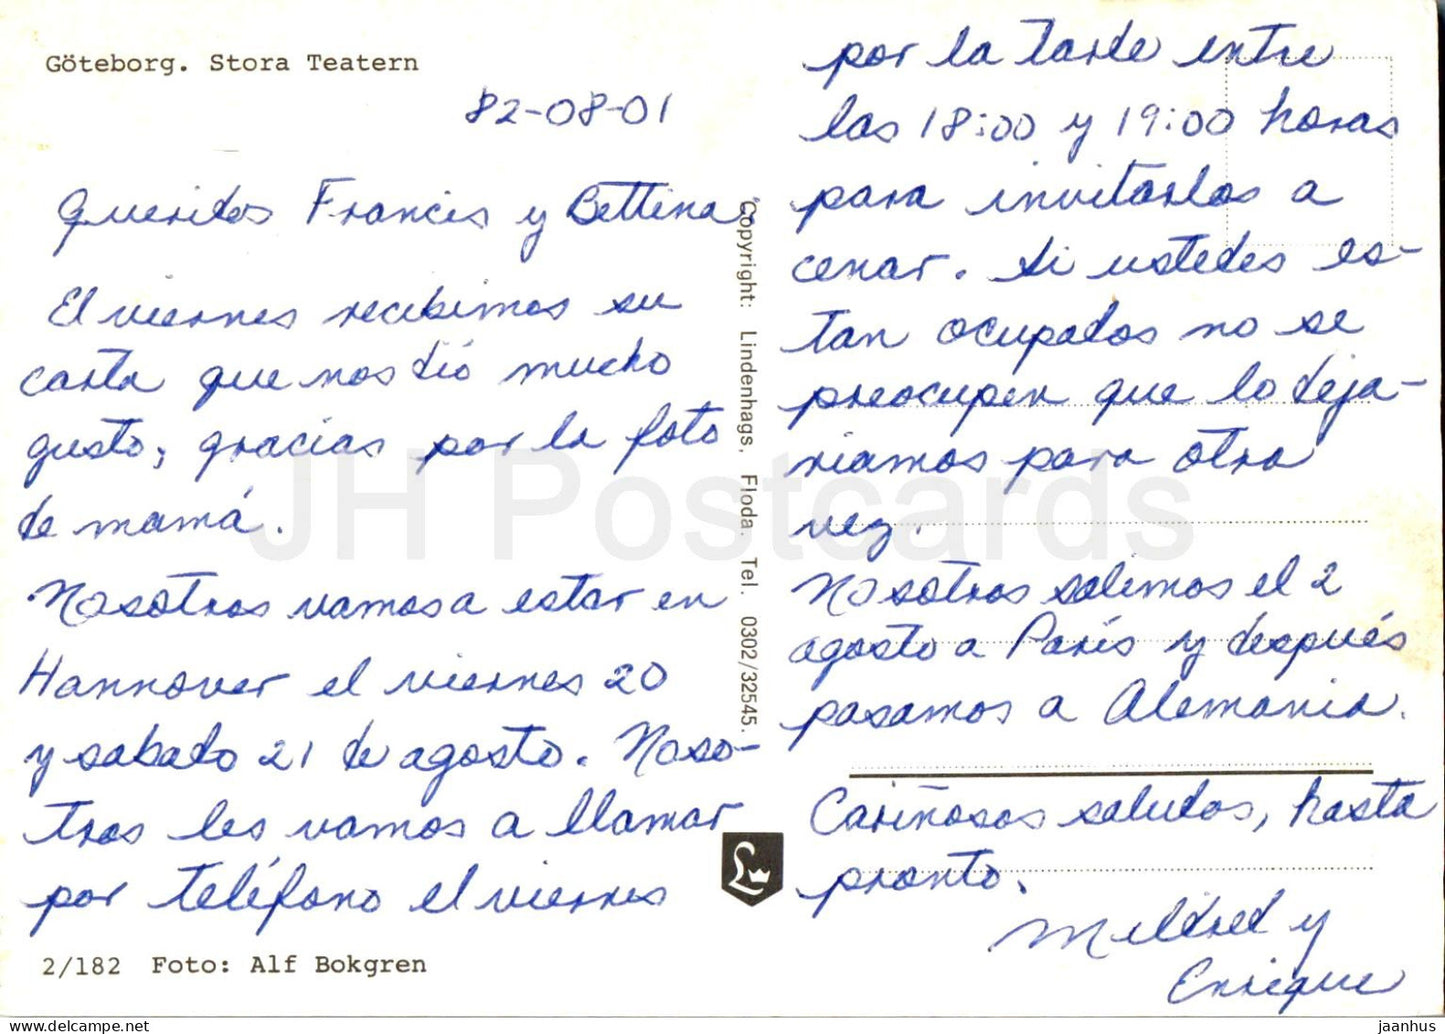 Göteborg. Stora Teatern
82-08-01
Queridos Francis y Bettina
El viernes recibimos su
carta que nos dió mucho
gusto, gracias por la foto
de mamá.
Nosotros vamos a estar en
Hannover el viernes 20
y sabado 21 de agosto. Noso-
tros les vamos a llamar
por teléfono el viernes
2/182 Foto: Alf Bokgren
Copyright: Lindenhags, Floda. Tel. 0302/32545.
L
por la tarde entre
las 18:00 y 19:00 horas
para invitarlos a
cenar. Si ustedes es-
tan ocupados no se
preocupen que lo deja-
riamos para otra
vez.
Nosotros salimos el 2
agosto a París y después
pasamos a Alemania.
Cariñosos saludos, hasta
pronto.
Mildred y
Enrique
JH Postcards
jaanhus